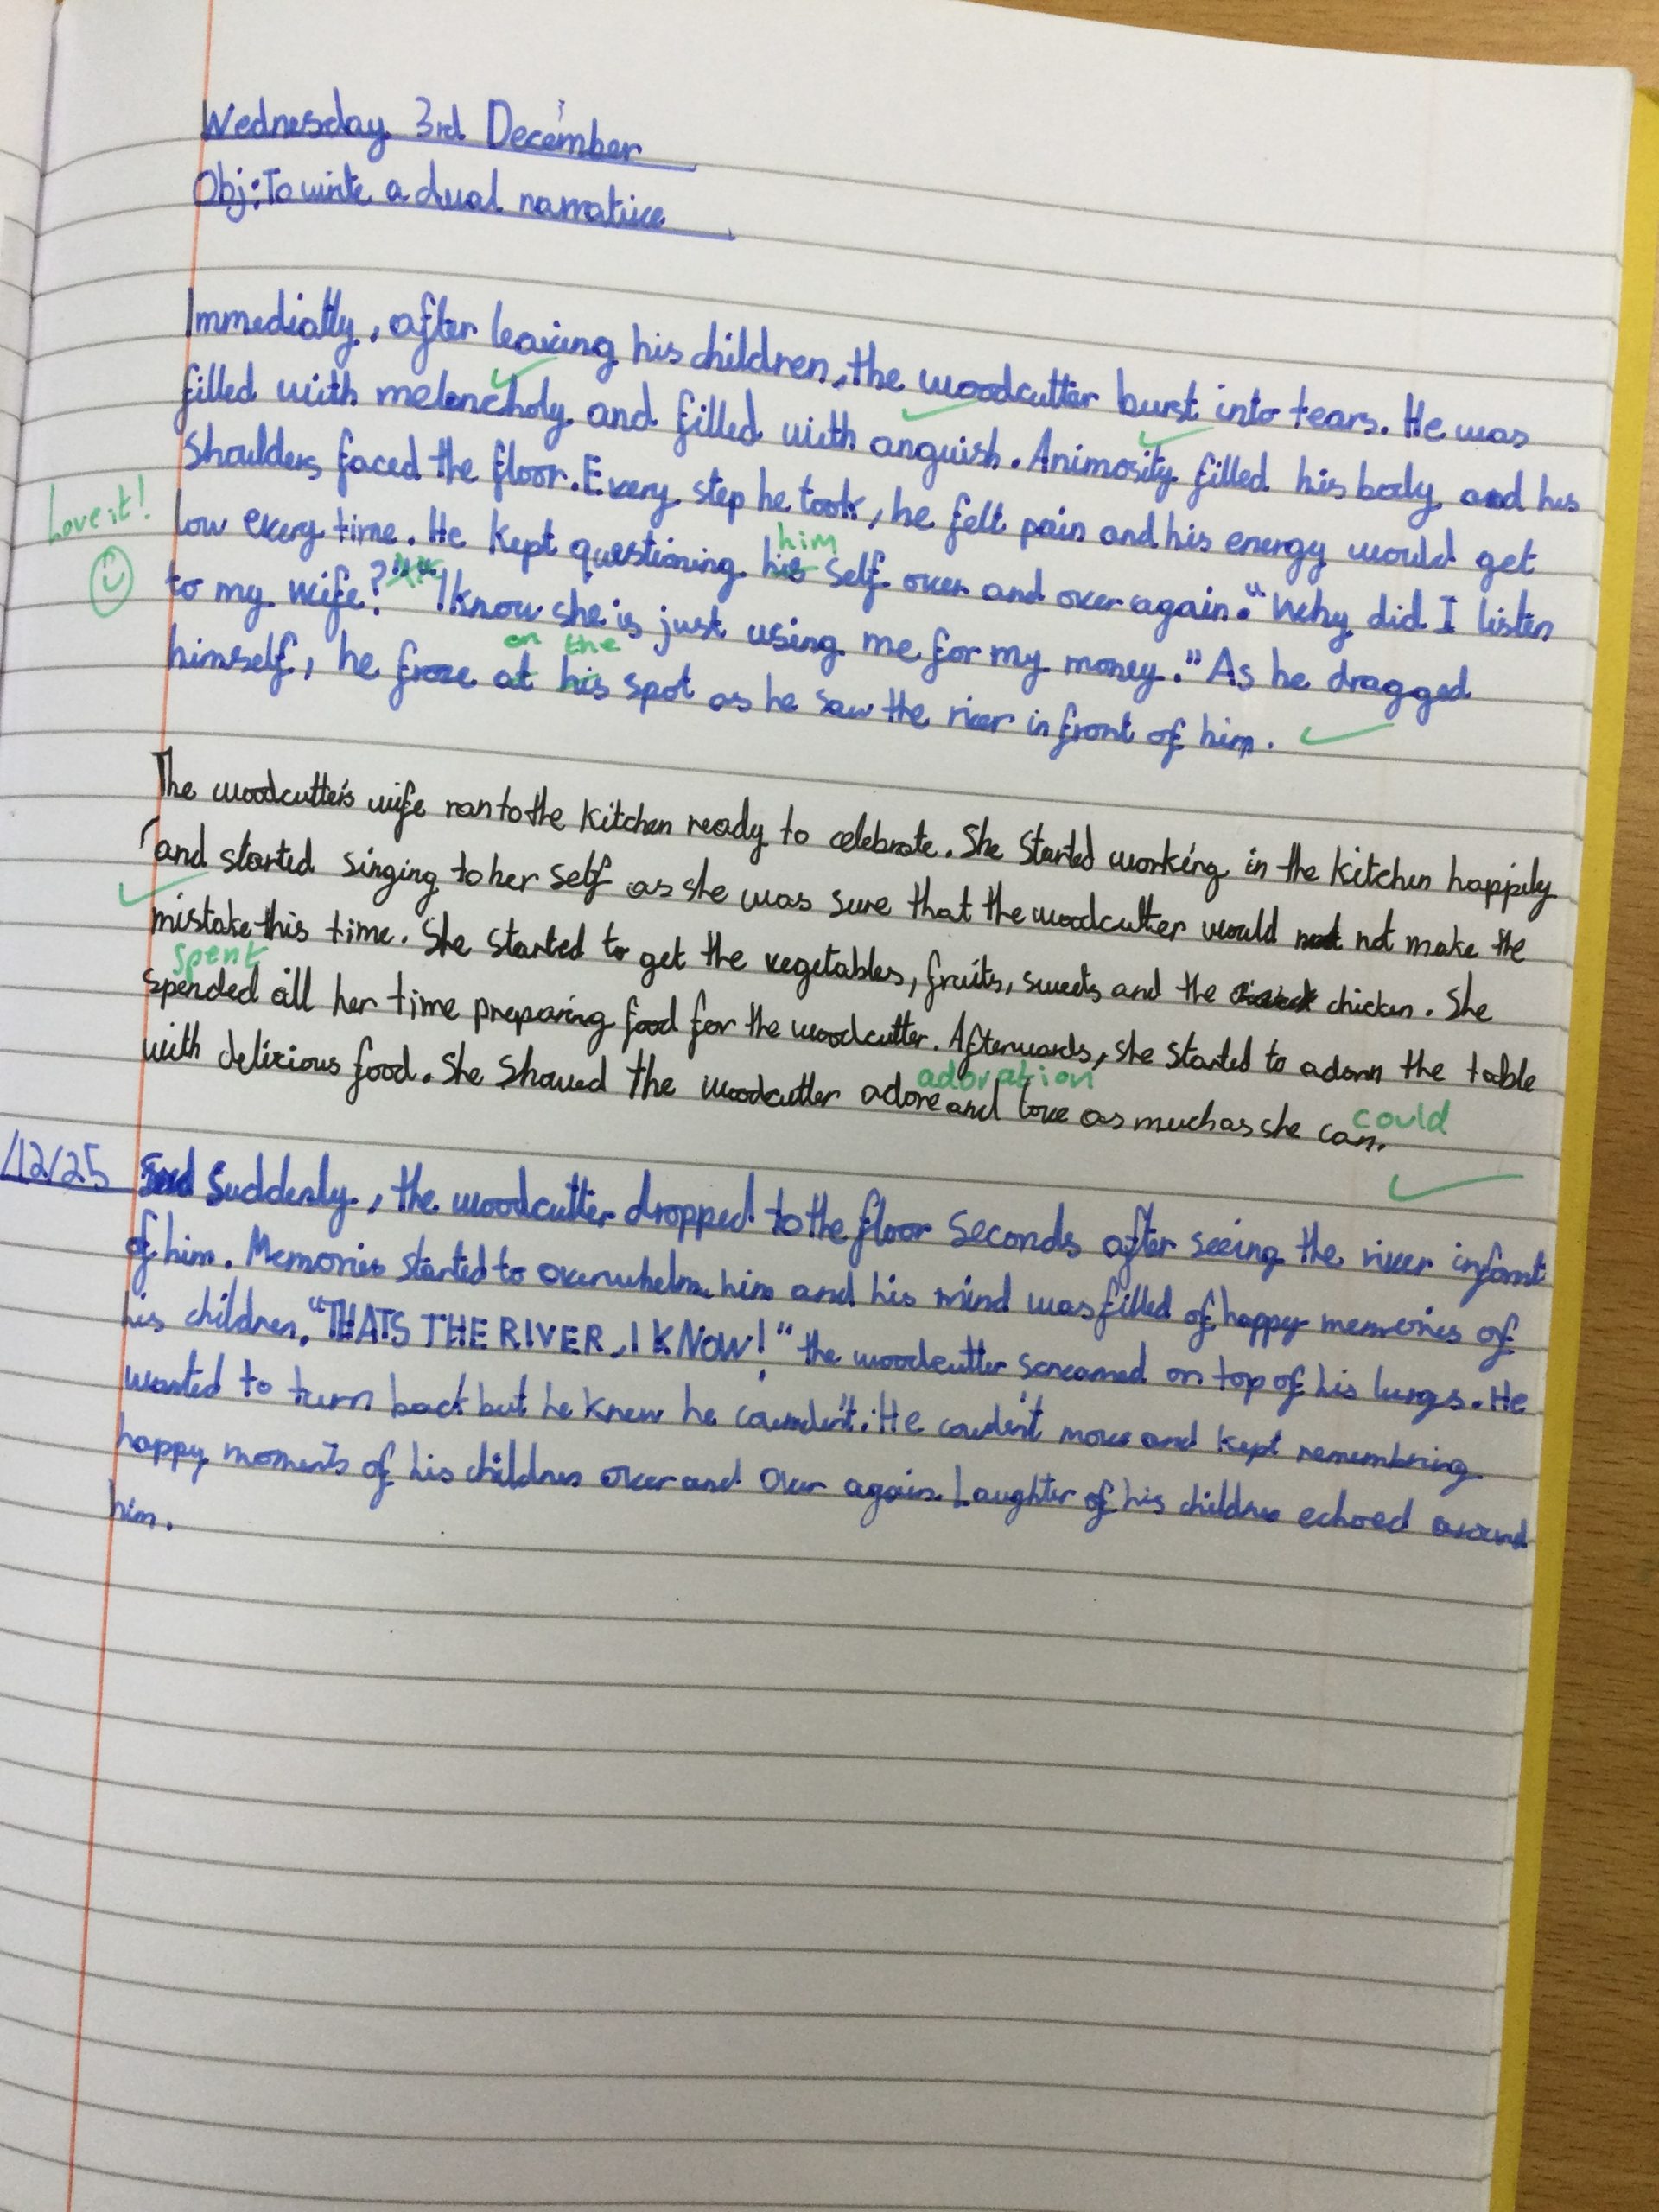 Wednesday 3rd December
Obj: To write a dual narrative
Immediatly, after leaving his children, the woodcutter burst into tears. He was
filled with melencholy and filled with anguish. Animosity filled his body and his
shoulders faced the floor. Every step he took, he felt pain and his energy would get
Love it!
low every time. He kept questioning his self over and over again. "Why did I listen
him
to my wife?" "I know she is just using me for my money." As he dragged
on the
himself, he froze at his spot as he saw the river in front of him.
The woodcutter's wife ran to the kitchen ready to celebrate. She started working in the kitchen happily
and started singing to her self as she was sure that the woodcutter would not make the
mistake this time. She started to get the vegetables, fruits, sweets and the chicken. She
spent
spended all her time preparing food for the woodcutter. Afterwards, she started to adorn the table
with delicious food. She showed the woodcutter adore and love as much as she can.
adoration
could
/12/25 Suddenly, the woodcutter dropped to the floor seconds after seeing the river infront
of him. Memories started to overwhelm him and his mind was filled of happy memories of
his children. "THATS THE RIVER, I KNOW!" the woodcutter screamed on top of his lungs. He
wanted to turn back but he knew he . He move and kept remembring
happy moments of his children over and over again. Laughter of his children echoed around
him.